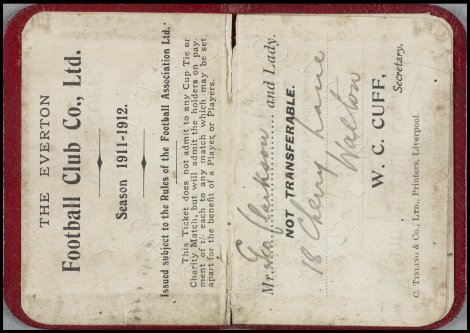 THE EVERTON
Football Club Co., Ltd.
Season 1911-1912.
Issued subject to the Rules of the Football Association Ltd.
This Ticket does not admit to any Cup Tie or
Charity Match, but will admit the holders on pay-
ment of 1/- each to any match which may be set
apart for the benefit of a Player or Players.
Mr. Geo Clarkson and Lady.
NOT TRANSFERABLE.
18 Cherry Lane
Walton
W. C. CUFF,
Secretary.
C. TINLING & CO., LTD., Printers, Liverpool.